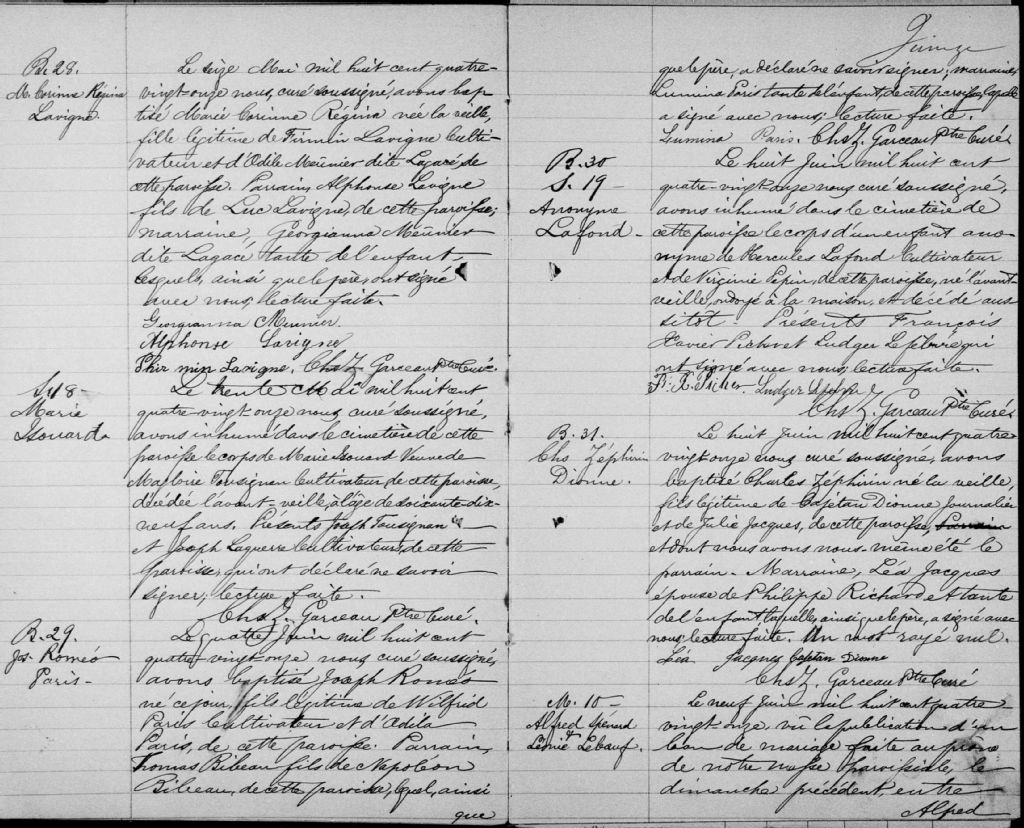 B. 28.
M. Corinne Régina
Lavigne.
Le seize Mai mil huit cent quatre-
vingt-onze nous, curé soussigné, avons bap-
tisé Marie Corinne Régina née la veille,
fille légitime de Firmin Lavigne Culti-
vateur et d'Odile Meunier dite Lagacé, de
cette paroisse. Parrain, Alphonse Lavigne
fils de Luc Lavigne, de cette paroisse;
marraine, Georgianna Meunier
dite Lagacé tante de l'enfant,
lesquels, ainsi que le père, ont signé
avec nous, lecture faite.
Georgianna Meunier.
Alphonse Lavigne
Phirmin Lavigne. Chs Z. Garceau Ptre Curé.
S. 18-
Marie
Isouard
Le trente Mai mil huit cent
quatre-vingt-onze nous, curé soussigné,
avons inhumé dans le cimetière de cette
paroisse le corps de Marie Isouard Veuve de
Tousignan Cultivateur, de cette paroisse,
décédée l'avant-veille, à l'âge de soixante-dix-
neuf ans. Présents Joseph Tousignan
et Joseph Laguerre Cultivateurs, de cette
paroisse, qui ont déclaré ne savoir
signer; lecture faite.
Chs Z. Garceau Ptre Curé.
B. 29.
Jos. Roméo
Paris-
Le quatre Juin mil huit cent
quatre-vingt-onze nous curé soussigné,
avons baptisé Joseph Roméo
né ce jour, fils légitime de Wilfrid
Paris Cultivateur et d'Odile
Paris, de cette paroisse. Parrain,
Thomas Bibeau fils de Napoleon
Bibeau, de cette paroisse, quel, ainsi
que
Quinze
que le père, a déclaré ne savoir signer; marraine,
Lumina Paris tante de l'enfant, de cette paroisse, laquelle
a signé avec nous; lecture faite.
Lumina Paris. Chs Z. Garceau Ptre Curé
B. 30
S. 19-
Anonyme
Lafond-
Le huit Juin mil huit cent
quatre-vingt-onze nous curé soussigné,
avons inhumé dans le cimetière de
cette paroisse le corps d'un enfant ano-
nyme de Hercules Lafond Cultivateur
et de Virginie Pepin, de cette paroisse, né l'avant-
veille, ondoyé à la maison, et décédé aus-
sitôt. Présents François
Xavier Ludger Lefebvre qui
ont signé avec nous, lecture faite.
F. X. Ludger
Chs Z. Garceau Ptre Curé
B. 31.
Chs Zéphirin
Dionne.
Le huit Juin mil huit cent quatre-
vingt-onze nous curé soussigné, avons
baptisé Charles Zéphirin né la veille,
fils légitime de Cajétan Dionne Journalier
et de Julie Jacques, de cette paroisse, Parrain
et dont nous avons nous-même été le
parrain. Marraine, Léa Jacques
épouse de Philippe Richard et tante
de l'enfant, laquelle, ainsi que le père, a signé avec
nous, lecture faite. Un mot rayé nul.
Léa Jacques Cajétan Dionne
Chs Z. Garceau Ptre Curé
M. 10-
Alfred
&
Léonie Lebœuf.
Le neuf Juin mil huit cent quatre-
vingt-onze vû la publication d'un
ban de mariage faite au prône
de notre messe paroissiale, le
dimanche précédent, entre
Alfred